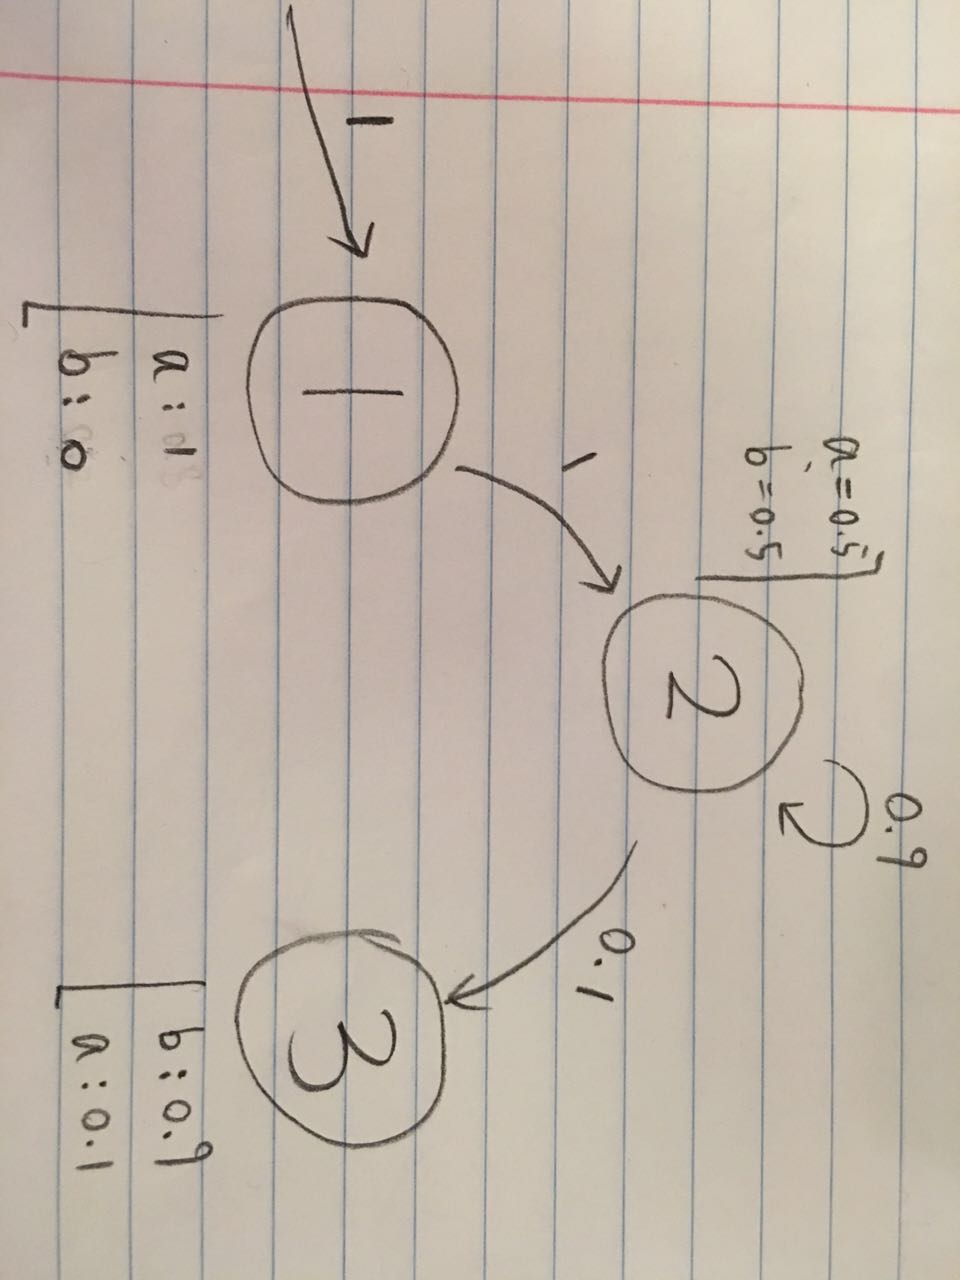 0.9
a=0.5
b=0.5
2
0.1
1
1
1
3
a:1
b:0
b:0.9
a:0.1